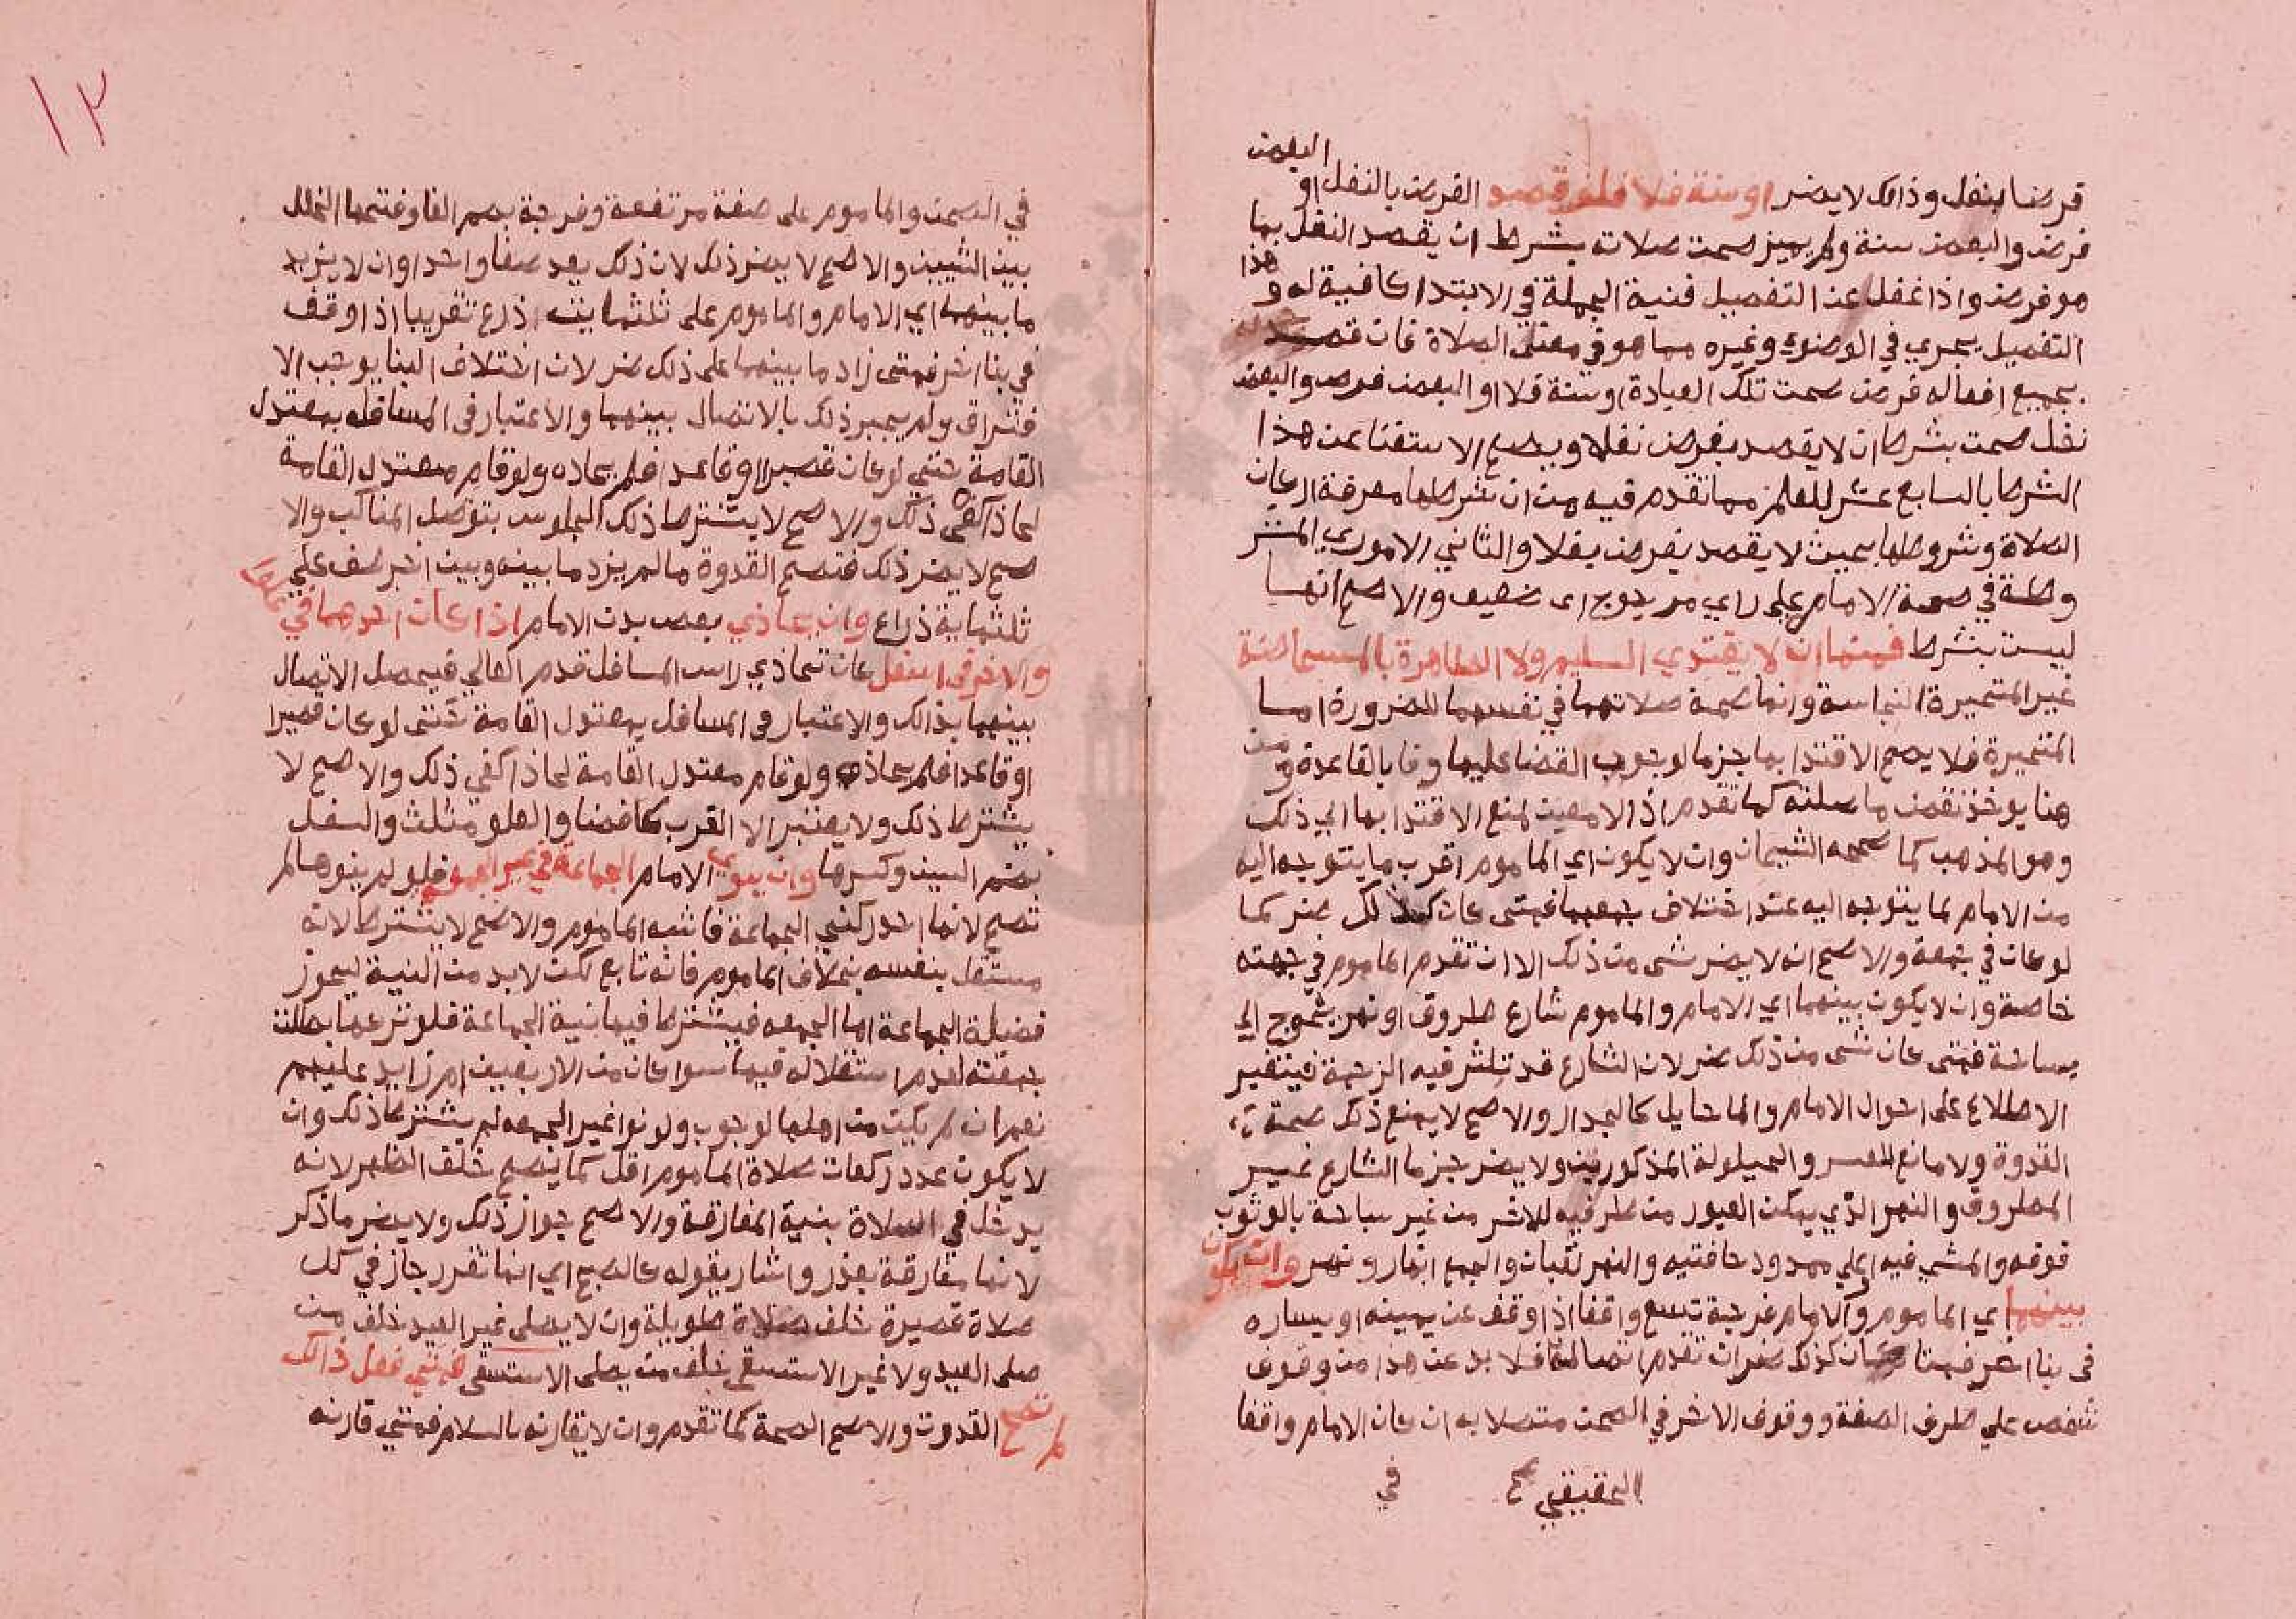 البعض
فرضا بنفل وذلك لا يضر او سنة فلا فلو قصد الفرض بالنفل او
فرض والبعض سنة ولم يميز صحت صلاته بشرط ان يقصد النفل بما
هو فرض واذا غفل عن التفصيل فنية الجملة في الابتدا كافية له وهذا
التفصيل يجري في الوضوء وغيره مما هو في معنى الصلاة فان قصد
بجميع افعاله فرض صحت تلك العبادة او سنة فلا او البعض فرض والبعض
نفل صحت بشرط ان لا يقصد بفرض نفلا ويصح الاستغنا عن هذا
الشرط بالسابع عشر للعلم مما تقدم فيه من ان شرطها معرفة اركان
الصلاة وشروطها بحيث لا يقصد بفرض نفلا والثاني الامور المشتر
وطة في صحة الامام على راي مرجوح اى ضعيف والاصح انها
ليست بشرط فمنها ان لا يقتدي السليم ولا الطاهرة بالمستحاضة
غير المتحيرة النجاسة وانما صحة صلاتهما في نفسهما للضرورة اما
المتحيرة فلا يصح الاقتدا بها جزما لوجوب القضا عليها وفا بالقاعدة ومن
هنا يوخذ نقض ما سلنه كما تقدم اذ لا معين لمنع الاقتدا بها الي ذلك
وهو المذهب كما صححه الشيخان وان لا يكون اي الماموم اقرب ما يتوجه اليه
من الامام لما يتوجه اليه عند اختلاف جهتهما فمتى كان كذلك ضر كما
لو كان في جهة والاصح انه لا يضر شى من ذلك الا ان تقدم الماموم في جهته
خاصة وان لا يكون بينهما اي الامام والماموم شارع مطروق او نهر يحوج الي
سباحة فمتى كان شى من ذلك ضر لان الشارع قد تكثر فيه الزحمة فيتغير
الاطلاع على احوال الامام والما حايل كالجدار والاصح لا يمنع ذلك صحة
القدوة ولا مانع للعسر والحيلولة المذكورين ولا يضر جزما الشارع غير
المطروق والنهر الذي يمكن العبور من طرفيه للاخر من غير سباحة بالوثوب
فوقه والمشي فيه او على ممدود حافتيه والنهر لغتان والجمع انهار ونهر وان يكون
بينهما اي الماموم والامام فرجة تسع واقفا اذا وقف عن يمينه او يساره
فى بنا اخر فمتى كان كذلك ضر ان تقدم اتصاله فلا بد عن هذا من وقوف
شخص علي طرف الصفة ووقوف الاخر في الصحن متصلا به ان كان الامام واقفا
الحقيقي صح
في
١٣
في الصحن والماموم على صفة مرتفعة وفرجة بضم الفا وفتحها الخلل
بين الشيين والاصح لا يضر ذلك لان ذلك يعد صفا واحدا وان لا يزيد
ما بينهما اي الامام والماموم على ثلثماية ذراع تقريبا اذا وقف
في بنا اخر فمتى زاد ما بينهما على ذلك ضر لان اختلاف البنا يوجب الا
فتراق ولم يجبر ذلك بالاتصال بينهما والاعتبار فى المسافله بمعتدل
القامة حتي لو كان قصيرا او قاعدا فلم يحاذه ولو قام معتدل القامة
لحاذ اكفى ذلك والاصح لا يشترط ذلك الجلوس بتوصل المناكب والا
صح لا يضر ذلك فتصح القدوة مالم يزد ما بينه وبين اخر صف علي
ثلثماية ذراع وان يحاذي بعض بدن الامام اذا كان احدهما في علو
والاخر في اسفل كان تحاذي راس المسافل قدم العالي فيحصل الاتصال
بينهما بذالك والاعتبار فى المسافل بمعتدل القامة حتى لو كان قصيرا
او قاعدا فلم يحاذه ولو قام معتدل القامة لحاذ اكفي ذلك والاصح لا
يشترط ذلك ولا يعتبر الا القرب كالفضا والعلو مثلث والسفل
بضم السين وكسرها وان ينوي الامام الجماعة في غير الجمعة فلو لم ينوها لم
تصح لانها احد ركني الجماعة فاشبه الماموم والاصح لا يشترط لانه
مستقل بنفسه بخلاف الماموم فانه تابع لكن لا بد من النية ليحوز
فضيلة الجماعة اما الجمعه فيشترط فيها نية الجماعة فلو تركها بطلت
جمعته لعدم استقلاله فيها سوا كان من الاربعين ام زايد عليهم
نعم ان لم يكن من اهلها لوجوب ولو نوا غير الجمعه لم يشترط ذلك وان
لا يكون عدد ركعات صلاة الماموم اقل كما يصح خلف الظهر لانه
يدخل في الصلاة بنية المفارقة والاصح جواز ذلك ولا يضر ما ذكر
لانها مفارقة بعذر واشار بقوله كالصبح اي انما تقرر جاز في كل
صلاة قصيرة خلف صلاة طويلة وان لا يصلى غير العيد خلف من
صلى العيد ولا غير الاستسقى خلف من يصلى الاستسقى فمتي فعل ذالك
لم تصح القدوت والاصح الصحة كما تقدم وان لا يقارنه بالسلام فمتي قارنه